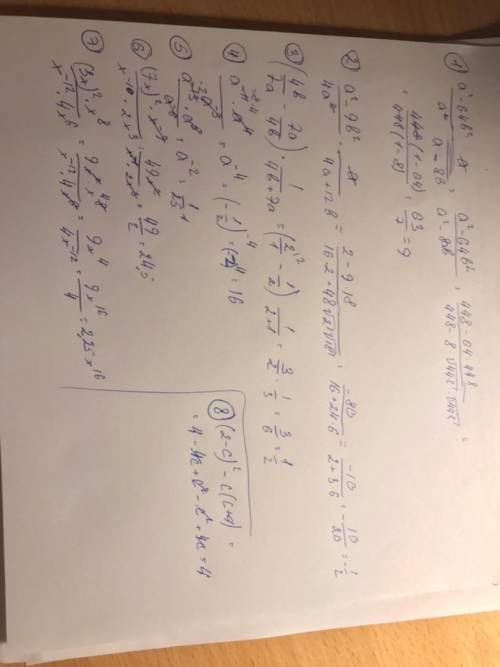 ① a²-64b² / a² · a / a-8b = a²-64b² / a²-8ab = 448-64·448 / 448-8·√448·√448 =
= 448(1-64) / 448(1-8) = 63/7 = 9
② a²-9b² / 4a² · a / 4a+12b = 2-9·18 / 16·2+48√2·√18 = -80 / 16+24·6 = -10 / 2+3·6 = -10/20 = -1/2
③ (4b/7a - 7a/4b) · 1 / 4b+7a = (2/1 - 1/2) · 1 / 2+1 = 3/2 · 1/3 = 3/6 = 1/2
④ = a⁻⁴ = (-1/2)⁻⁴ = (-2)⁴ = 16
⑤ = a⁻² = 1/25
⑥ (7x)²·x⁻⁸ / x⁻¹⁰·2x³ = 49/2 = 24,5
⑦ (3x)²·x⁸ / x⁻¹²·4x⁶ = 9x⁴ / 4x⁻¹² = 9x¹⁶ / 4 = 2,25x¹⁶
⑧ (2-c)² - c(c+4) =
= 4-4c+c²-c²+4c = 4